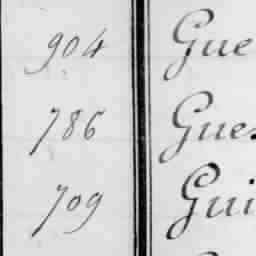 904 Gue
786 Gues
709 Gui